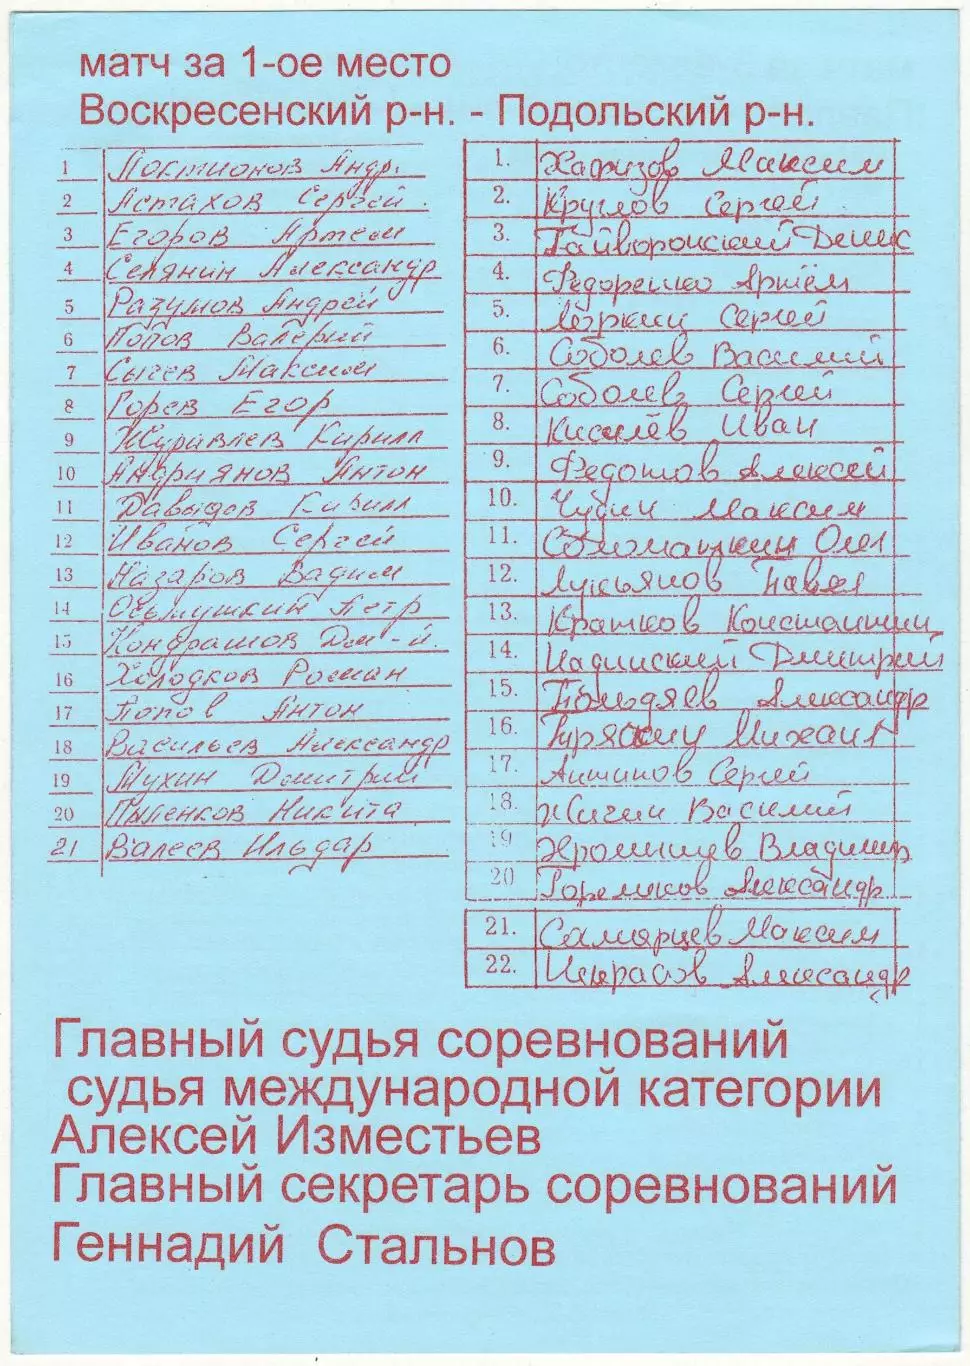 матч за 1-ое место
Воскресенский р-н. - Подольский р-н.
1 Локтионов Андр.
2 Астахов Сергей.
3 Егоров Артем
4 Селянин Александр
5 Разумов Андрей
6 Попов Валерий
7 Сычев Максим
8 Горев Егор
9 Журавлев Кирилл
10 Андриянов Антон
11 Давыдов Кирилл
12 Иванов Сергей
13 Назаров Вадим
14 Петр
15 Кондрашов Дм-й.
16 Холодков Роман
17 Попов Антон
18 Васильев Александр
19 Мухин Дмитрий
20 Пыленков Никита
21 Валеев Ильдар
1. Хафизов Максим
2. Круглов Сергей
3. Гайворонский Денис
4. Федоренко Артём
5. Сергей
6. Соболев Василий
7. Соболев Сергей
8. Киселёв Иван
9. Федотов Алексей
10. Чубин Максим
11. Соломашкин Олег
12. Лукьянов Павел
13. Кратков Константин
14. Надинский Дмитрий
15. Польдяев Александр
16. Михаил
17. Антипов Сергей
18. Жигин Василий
19 Хромищев Владимир
20 Горемыков Александр
21. Самарцев Максим
22. Некрасов Александр
Главный судья соревнований
судья международной категории
Алексей Изместьев
Главный секретарь соревнований
Геннадий Стальнов